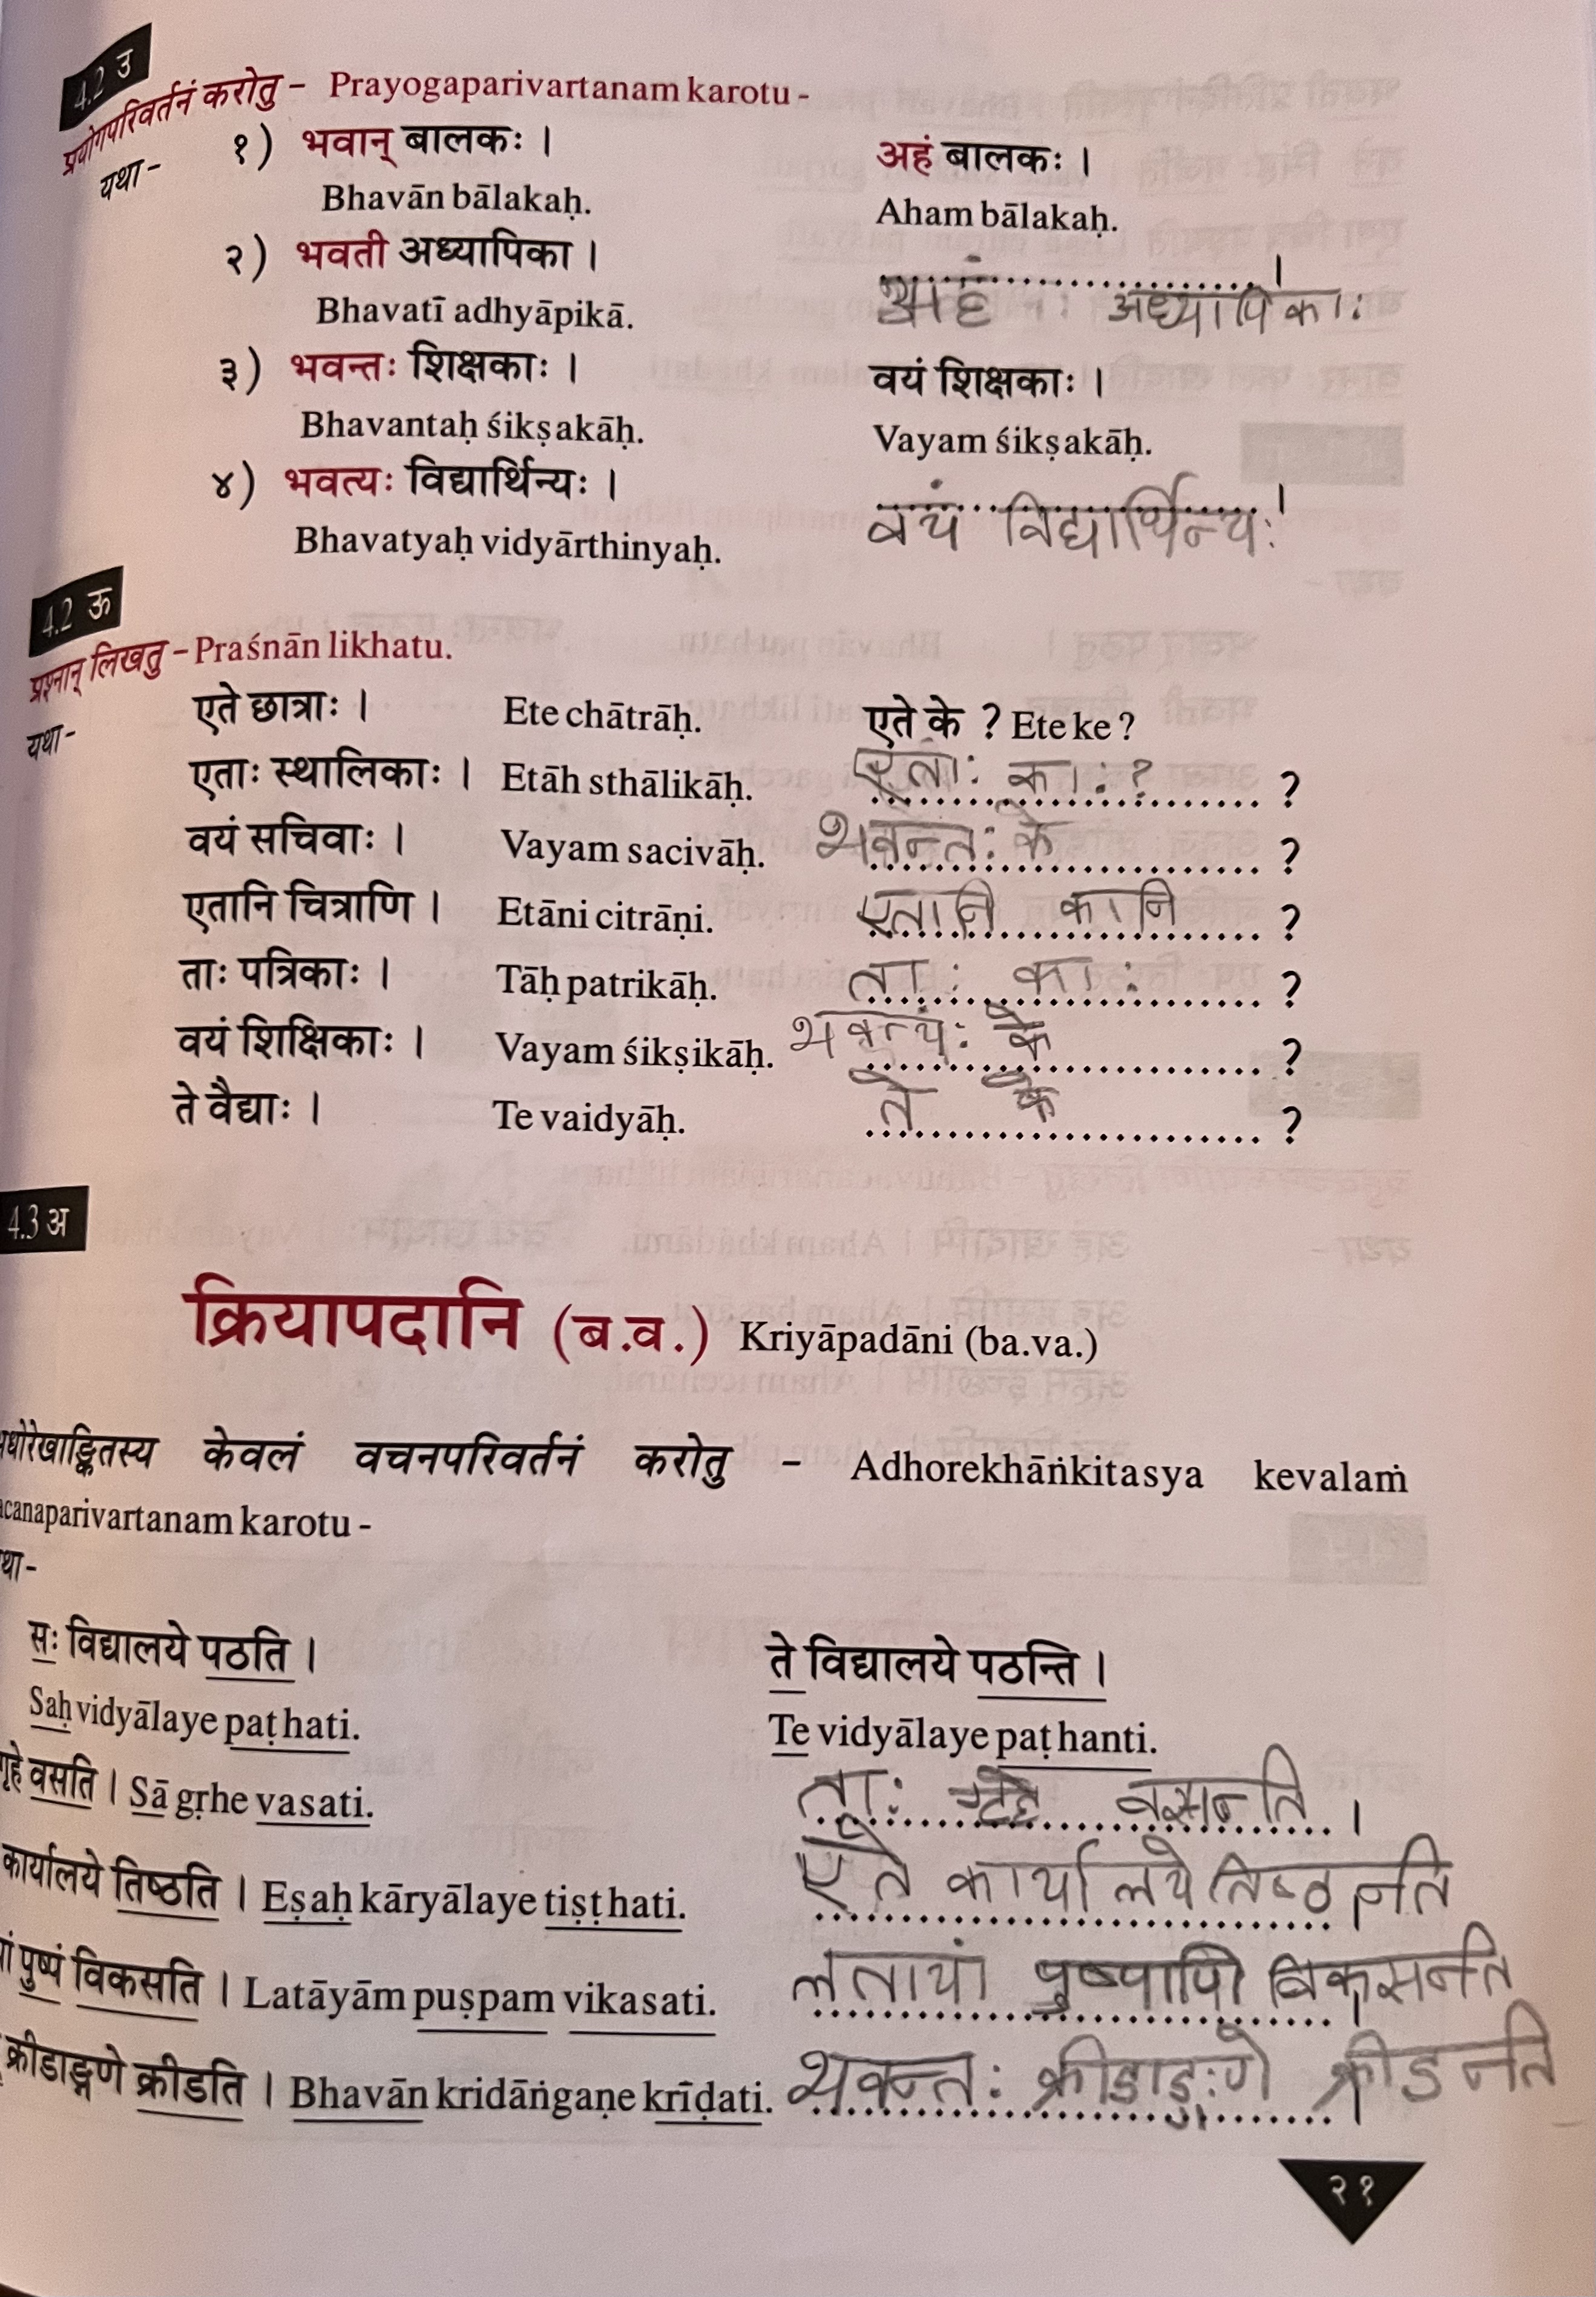 4.2 उ
प्रयोगपरिवर्तनं करोतु – Prayogaparivartanam karotu -
यथा – १) भवान् बालकः । अहं बालकः ।
Bhavān bālakaḥ. Aham bālakaḥ.
२) भवती अध्यापिका । ..............................।
Bhavatī adhyāpikā. अहं अध्यापिकाः
३) भवन्तः शिक्षकाः । वयं शिक्षकाः ।
Bhavantaḥ śikṣakāḥ. Vayam śikṣakāḥ.
४) भवत्यः विद्यार्थिन्यः । ..............................।
Bhavatyaḥ vidyārthinyaḥ. वयं विद्यार्थिन्यः
4.2 ऊ
प्रश्नान् लिखतु – Praśnān likhatu.
यथा – एते छात्राः । Ete chātrāḥ. एते के ? Ete ke ?
एताः स्थालिकाः । Etāh sthālikāḥ. एताः काः ? ?
वयं सचिवाः । Vayam sacivāḥ. भवन्तः के ?
एतानि चित्राणि । Etāni citrāṇi. एतानि कानि ?
ताः पत्रिकाः । Tāḥ patrikāḥ. ताः काः ?
वयं शिक्षिकाः । Vayam śikṣikāḥ. के ?
ते वैद्याः । Te vaidyāḥ. ते के ?
4.3 अ
क्रियापदानि (ब.व.) Kriyāpadāni (ba.va.)
धोरेखाङ्कितस्य केवलं वचनपरिवर्तनं करोतु – Adhorekhāṅkitasya kevalaṁ
acanaparivartanam karotu -
था –
सः विद्यालये पठति । ते विद्यालये पठन्ति ।
Saḥ vidyālaye paṭhati. Te vidyālaye paṭhanti.
गृहे वसति । Sā gṛhe vasati. ताः वसन्ति ।
कार्यालये तिष्ठति । Eṣaḥ kāryālaye tiṣṭhati. एते कार्यालये तिष्ठन्ति ।
पुष्पं विकसति । Latāyām puṣpam vikasati. लतायां पुष्पाणि विकसन्ति ।
क्रीडाङ्गणे क्रीडति । Bhavān kridāṅgaṇe krīḍati. भवन्तः क्रीडाङ्गणे क्रीडन्ति ।
२१